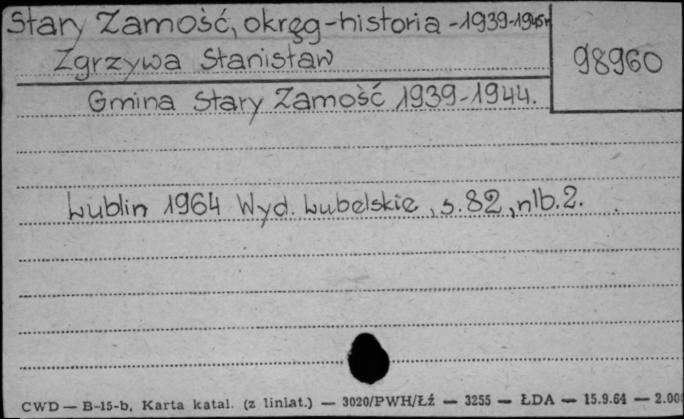 Stary Zamość, okręg-historia-1939-1945r
Zgrzywa Stanisław
98960
Gmina Stary Zamość 1939-1944.
Lublin 1964 Wyd. Lubelskie, s. 82, nlb. 2.
CWD — B-15-b, Karta katal. (z liniat.) — 3020/PWH/Łź — 3255 — ŁDA — 15.9.64 — 2.000